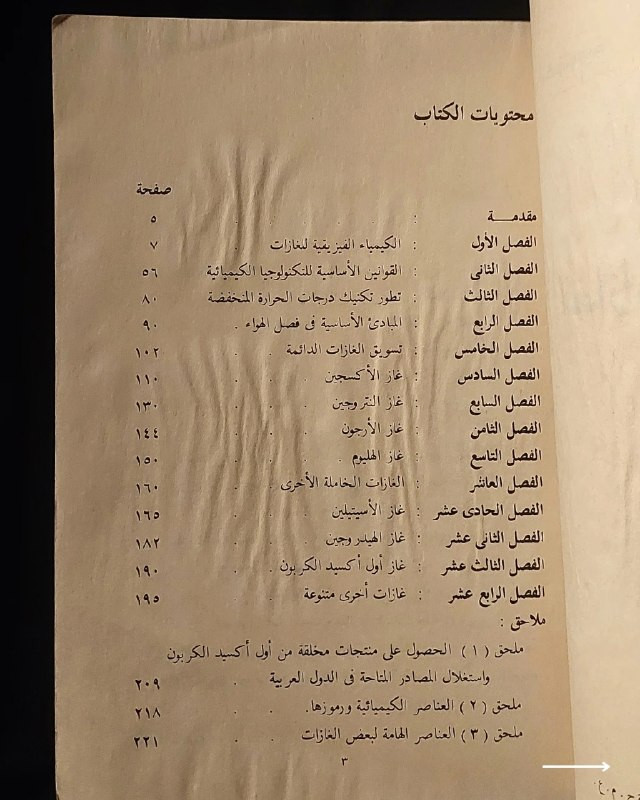 محتويات الكتاب
صفحة
مقدمــــة : ٥
الفصل الأول : الكيمياء الفيزيقية للغازات . ٧
الفصل الثانى : القوانين الأساسية للتكنولوجيا الكيميائية ٥٦
الفصل الثالث : تطور تكنيك درجات الحرارة المنخفضة ٨٠
الفصل الرابع : المبادئ الأساسية فى فصل الهواء . ٩٠
الفصل الخامس : تسويق الغازات الدائمة . . ١٠٢
الفصل السادس : غاز الأكسجين . . . ١١٠
الفصل السابع : غاز النتروجين . . . ١٣٠
الفصل الثامن : غاز الأرجون . . . ١٤٤
الفصل التاسع : غاز الهليوم . . . . ١٥٠
الفصل العاشر : الغازات الخاملة الأخرى . . ١٦٠
الفصل الحادى عشر : غاز الأسيتيلين . . . ١٦٥
الفصل الثانى عشر : غاز الهيدروجين . . . ١٨٢
الفصل الثالث عشر : غاز أول أكسيد الكربون . . ١٩٠
الفصل الرابع عشر : غازات أخرى متنوعة . ١٩٥
ملاحق :
ملحق ( ١ ) الحصول على منتجات مخلقة من أول أكسيد الكربون
واستغلال المصادر المتاحة فى الدول العربية . ٢٠٩
ملحق ( ٢ ) العناصر الكيميائية ورموزها. . . ٢١٨
ملحق ( ٣ ) العناصر الهامة لبعض الغازات . . ٢٢١
٣